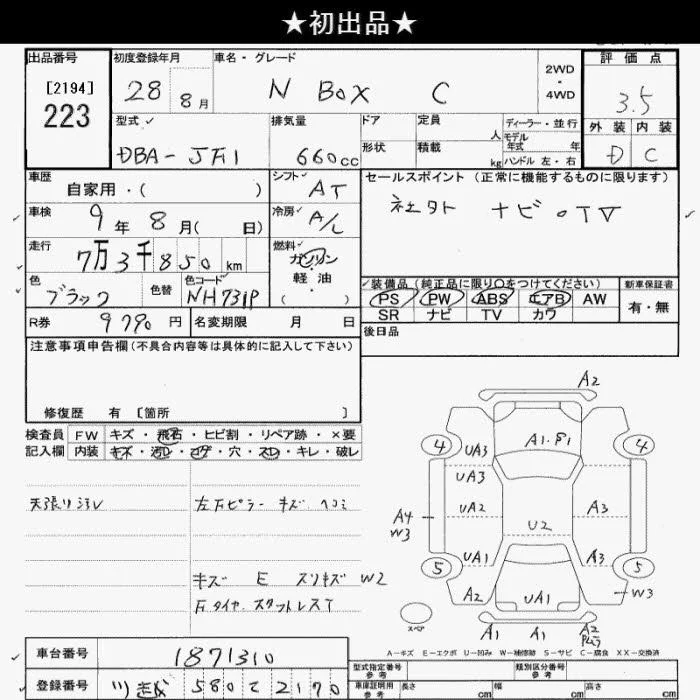 ★初出品★
出品番号
[2194]
223
初度登録年月
28 8月
車名・グレード
N BOX C
2WD
・
4WD
評価点
3.5
外装 内装
D C
型式
DBA-JF1
排気量
660cc
ドア
形状
定員 人
積載 kg
ディーラー・並行
モデル
年式 年
ハンドル 左・右
車歴
自家用・( )
シフト
AT
セールスポイント (正常に機能するものに限ります)
社外 ナビ・TV
車検
9年 8月( 日)
冷房
A/C
走行
7万3千850km
燃料
ガソリン
軽油
( )
色
ブラック
色替
色コード
NH731P
装備品 (純正品に限り○をつけてください)
PS PW ABS エアB AW
SR ナビ TV カワ
新車保証書
有・無
R券 9790円
名変期限 月 日
後日品
注意事項申告欄 (不具合内容等は具体的に記入して下さい)
修復歴 有 [箇所 ]
検査員
記入欄
FW キズ・飛石・ヒビ割・リペア跡・×要
内装 キズ・汚れ・コゲ・穴・スレ・キレ・破レ
天張り汚レ
左下ピラー キズ ヘコミ
キズ E スリキズ W2
F.タイヤ スタットレス
A2
4 4
A1.P1
UA3
UA3
UA2 A3
A4
W3
U2
UA1 A3
5 5
A2 UA1 W3
スペア
A1 A1 A2
A-キズ E-エクボ U-凹み W-補修跡 S-サビ C-腐食 XX-交換済
車台番号 1871310
登録番号 580 て 2170
型式指定番号
参考
類別区分番号
参考
車庫証明用
参考
長さ cm 幅 cm 高さ cm